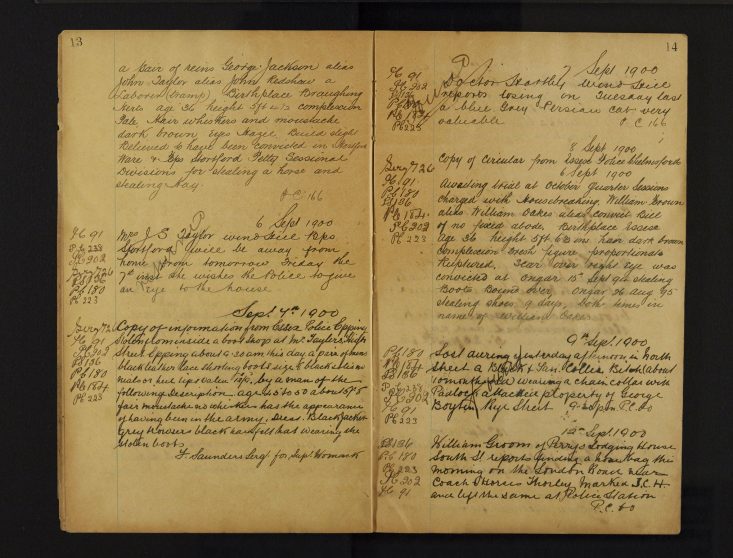 13
a Pair of reins George Jackson alias
John Taylor alias John Redshaw a
Laborer (tramp) Birthplace Braughing
Herts age 36 height 5ft complexion
Pale Hair whiskers and moustache
dark brown eyes Hazel Build slight
Believed to have been convicted in
Ware & Bps Stortford Petty Sessional
Divisions for stealing a horse and
stealing Hay.
PC 166
6 Sept 1900
Mrs J. S. Taylor Wind Hill Bps
Stortford will be away from
home from tomorrow Friday the
7th inst she wishes the Police to give
an Eye to the house
PC 91
PC 238
PC 202
Sergt 726
PC 136
PC 180
PC 223
Sept 7th 1900
Copy of information from Essex Police Epping
Stolen from inside a boot shop at Mr Taylors High
Street Epping about 9.30 am this day a pair of mens
black leather lace shooting boots size 8 black
nails or red tips value by a man of the
following Description age 45 to 50 about 5ft 5
fair moustache no whiskers has the appearance
of having been in the army, Dress Black jacket
Grey trowsers black hard felt hat wearing the
stolen boots
F. Saunders Sergt for Supt Womack
Sergt 726
PC 91
PC 202
PC 136
PC 180
PC 184
PC 223
14
7 Sept 1900
Doctor Hartley Wind Hill
reports losing on Tuesday last
a blue Grey Persian cat very
valuable
PC 166
PC 91
PC 202
PC 136
PC 184
PC 223
8 Sept 1900
Copy of Circular from Essex Police Chelmsford
6 Sept 1900
Awaiting trial at October Quarter Sessions
charged with Housebreaking, William Brown
alias William Oakes alias Convict Bill
of no fixed abode, Birthplace Essex
Age 36 height 5ft 6 ins hair dark brown
complexion fresh figure proportionate
Ruptured. Scar over right Eye was
convicted at Ongar 15 Sept 94 stealing
Boots Bound over. Ongar 26 Aug 95
stealing shoes 9 days, both times in
name of William Oakes
Sergt 726
PC 91
PC 180
PC 136
PC 184
PC 202
PC 223
9th Sept. 1900
Lost during yesterday afternoon in North
Street a Black & Tan Collie Bitch (about
12 months old) wearing a chain collar with
Padlock attached property of George
Boytin Rye Street
PC 180
PC 184
PC 136
PC 238
PC 202
PC 91
PC 223
12th Sept. 1900
William Groom of Perrys Lodging House
South St reports finding a nose bag this
morning on the London Road near
Coach & Horses Thorley Marked J.C.H.
and left the same at Police Station
PC 136
PC 180
PC 223
PC 202
PC 91